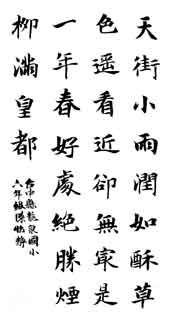 天街小雨潤如酥草
色遥看近卻無最是
一年春好處絕勝煙
柳滿皇都
台中縣龍泉國小
六年級陳